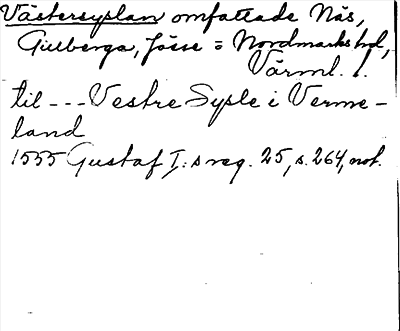 Västersyslan omfattade Näs,
Gillberga, Jösse = Nordmarks hd,
Värml. l.
til --- Vestre Sysle i Verme-
land
1555 Gustaf I:s reg. 25, s. 264, not.